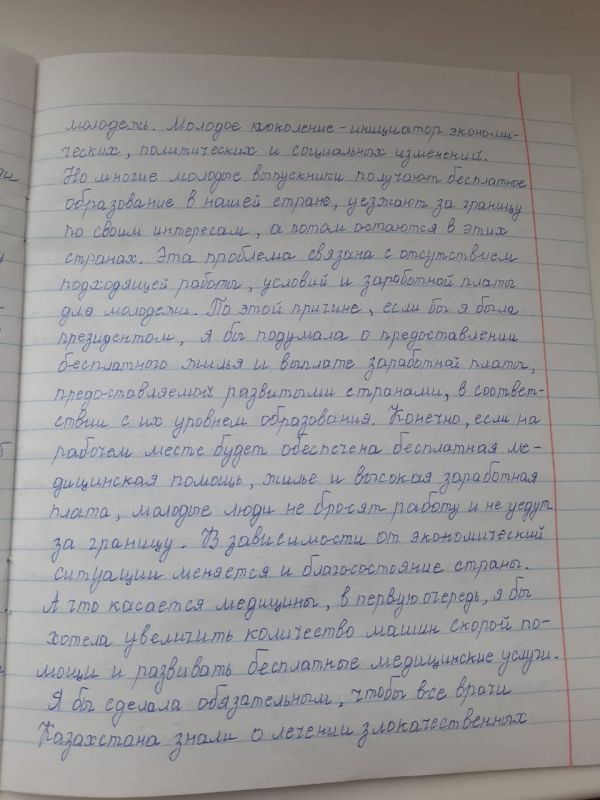 молодежи. Молодое поколение - инициатор экономи-
ческих, политических и социальных изменений.
Но многие молодые выпускники получают бесплатное
образование в нашей стране, уезжают за границу
по своим интересам, а потом остаются в этих
странах. Эта проблема связана с отсутствием
подходящей работы, условий и заработной платы
для молодежи. По этой причине, если бы я была
президентом, я бы подумала о предоставлении
бесплатного жилья и выплате заработной платы,
предоставляемой развитыми странами, в соответ-
ствии с их уровнем образования. Конечно, если на
рабочем месте будет обеспечена бесплатная ме-
дицинская помощь, жилье и высокая заработная
плата, молодые люди не бросят работу и не уедут
за границу. В зависимости от экономический
ситуации меняется и благосостояние страны.
А что касается медицины, в первую очередь, я бы
хотела увеличить количество машин скорой по-
мощи и развивать бесплатные медицинские услуги.
Я бы сделала обязательным, чтобы все врачи
Казахстана знали о лечении злокачественных